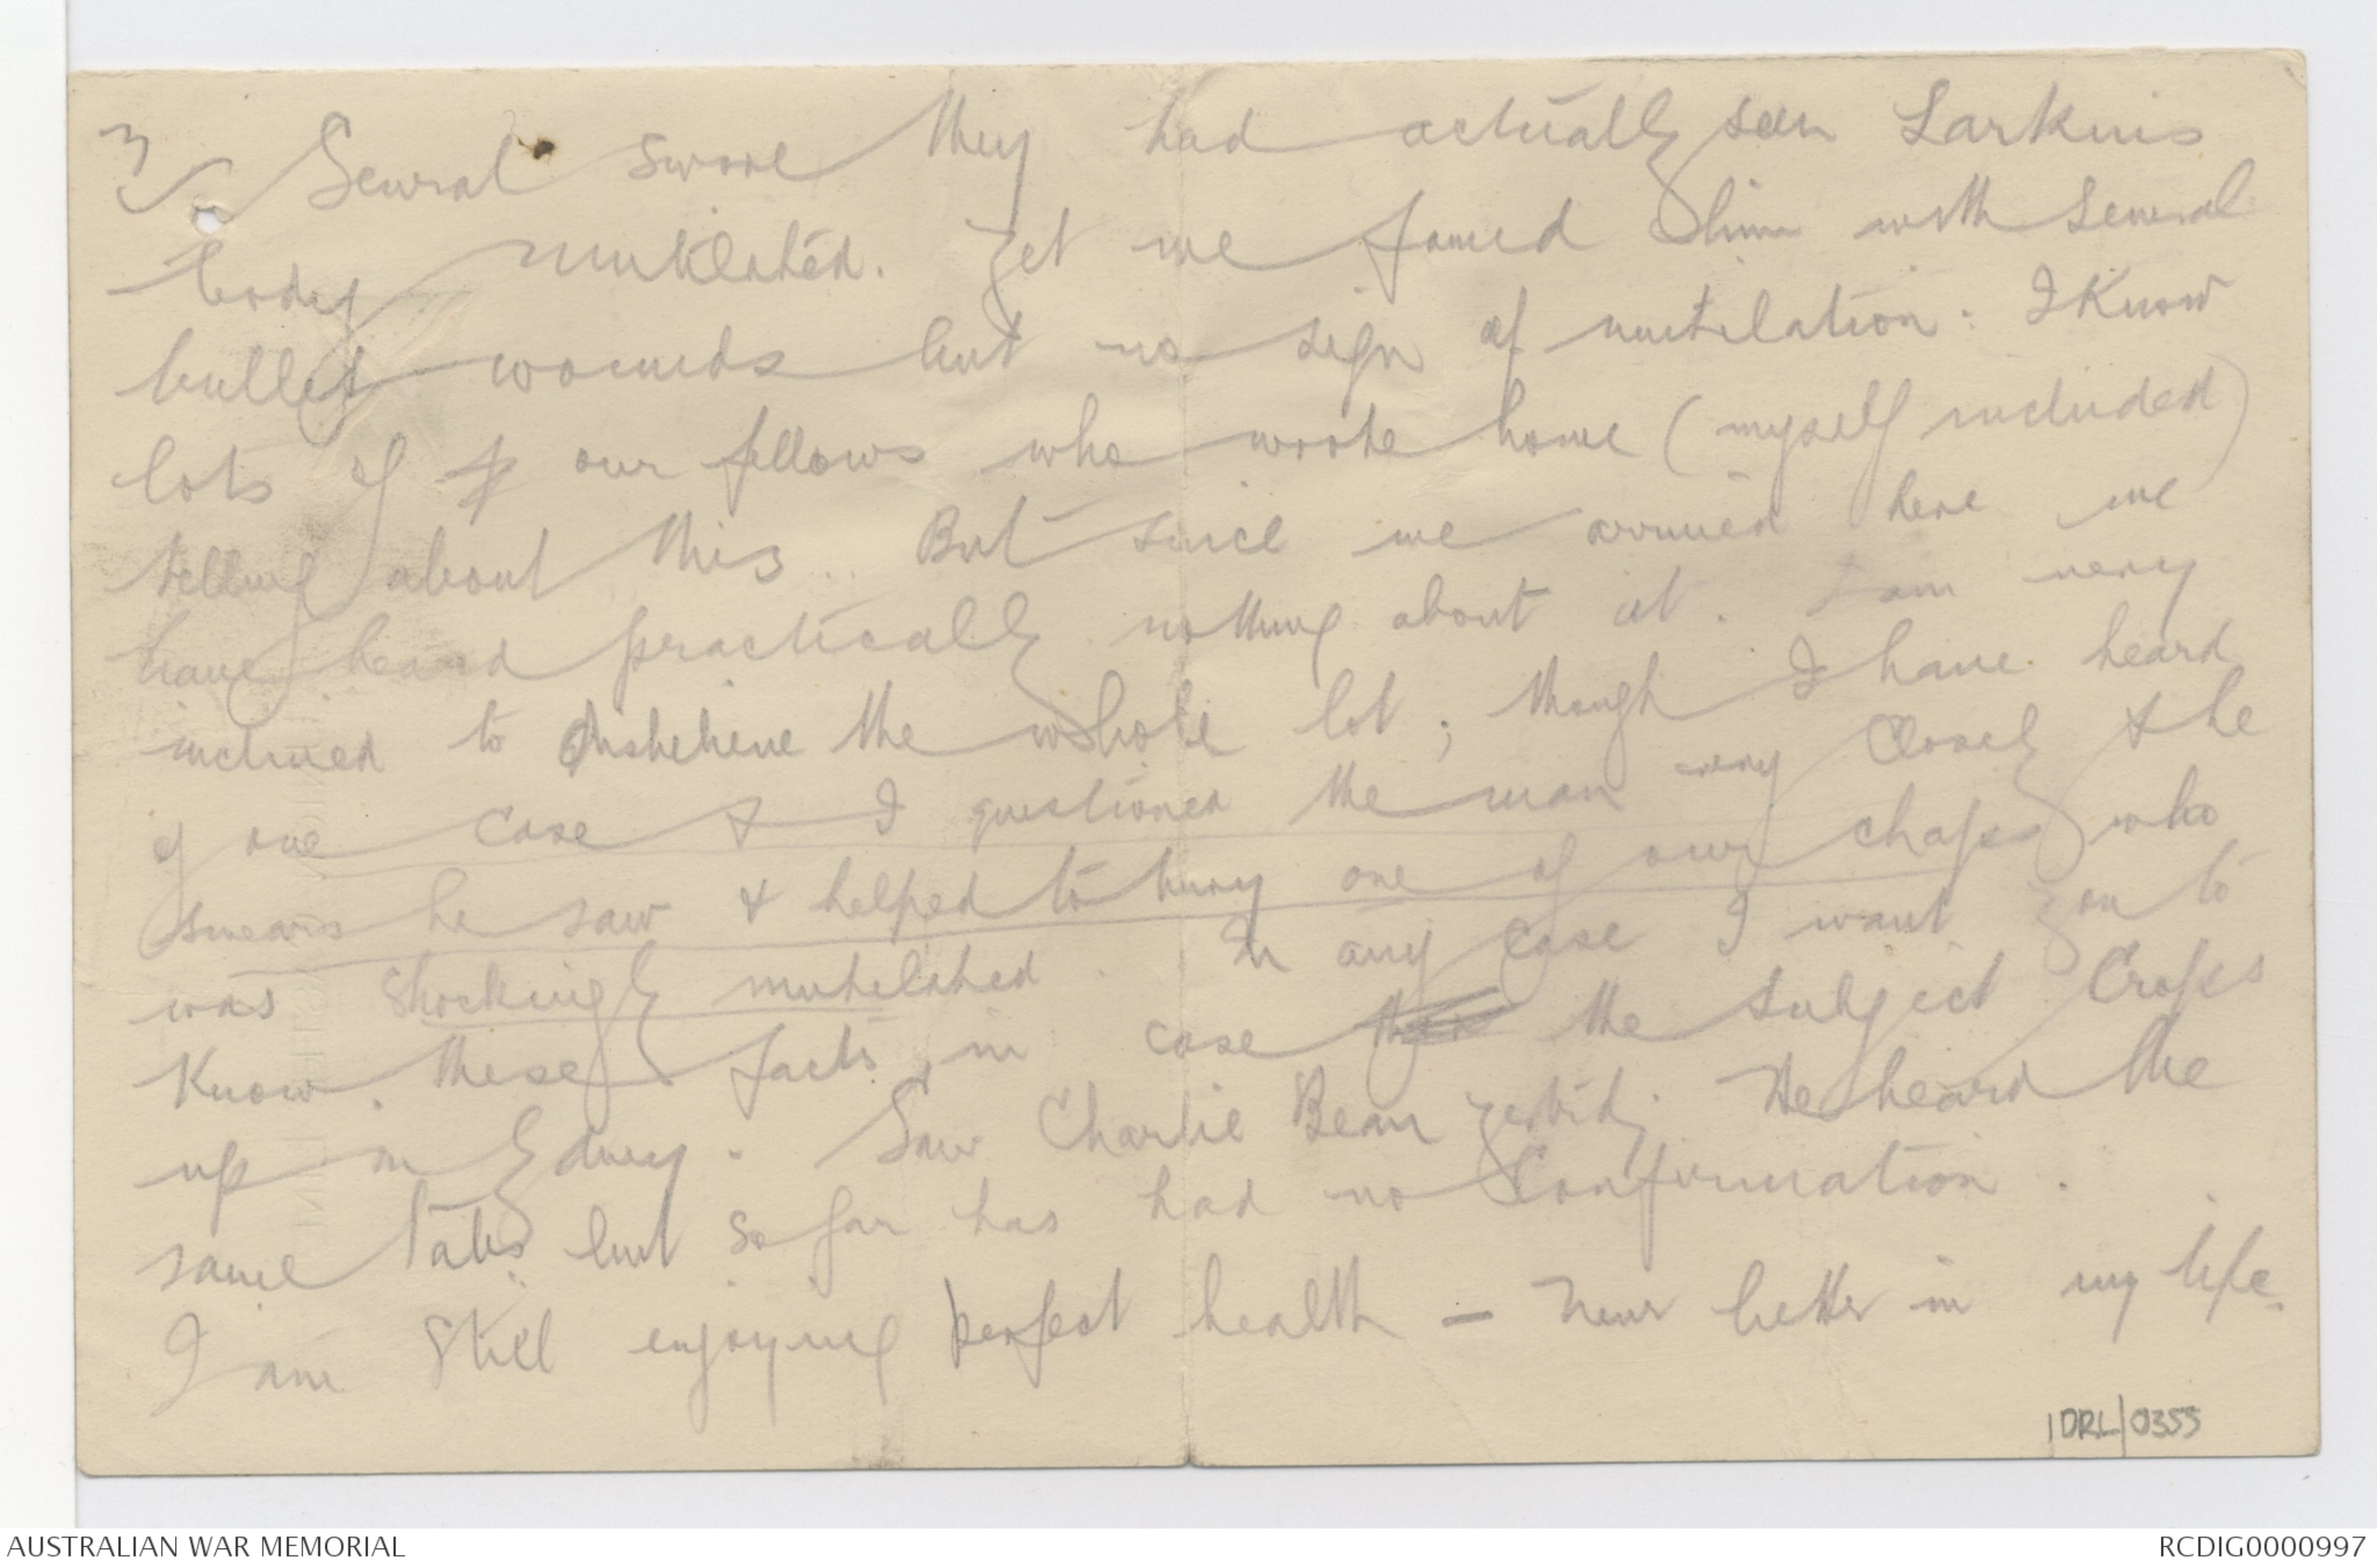 3/ Several swore they had actually seen Larkins
body mutilated. Yet we found him with several
bullet wounds but no sign of mutilation. I know
lots of our fellows who wrote home (myself included)
telling about this. But since we arrived here we
have heard practically nothing about it. I am very
inclined to disbelieve the whole lot; though I have heard
of one case & I questioned the man very closely & he
swears he saw & helped to bury one of our chaps who
was shockingly mutilated. In any case I want you to
know these facts, in case the subject crops
up in Sydney. Saw Charlie Bean yestdy. He heard the
same tales but so far has had no confirmation.
I am still enjoying perfect health – never better in my life.
1DRL/0355
AUSTRALIAN WAR MEMORIAL
RCDIG0000997